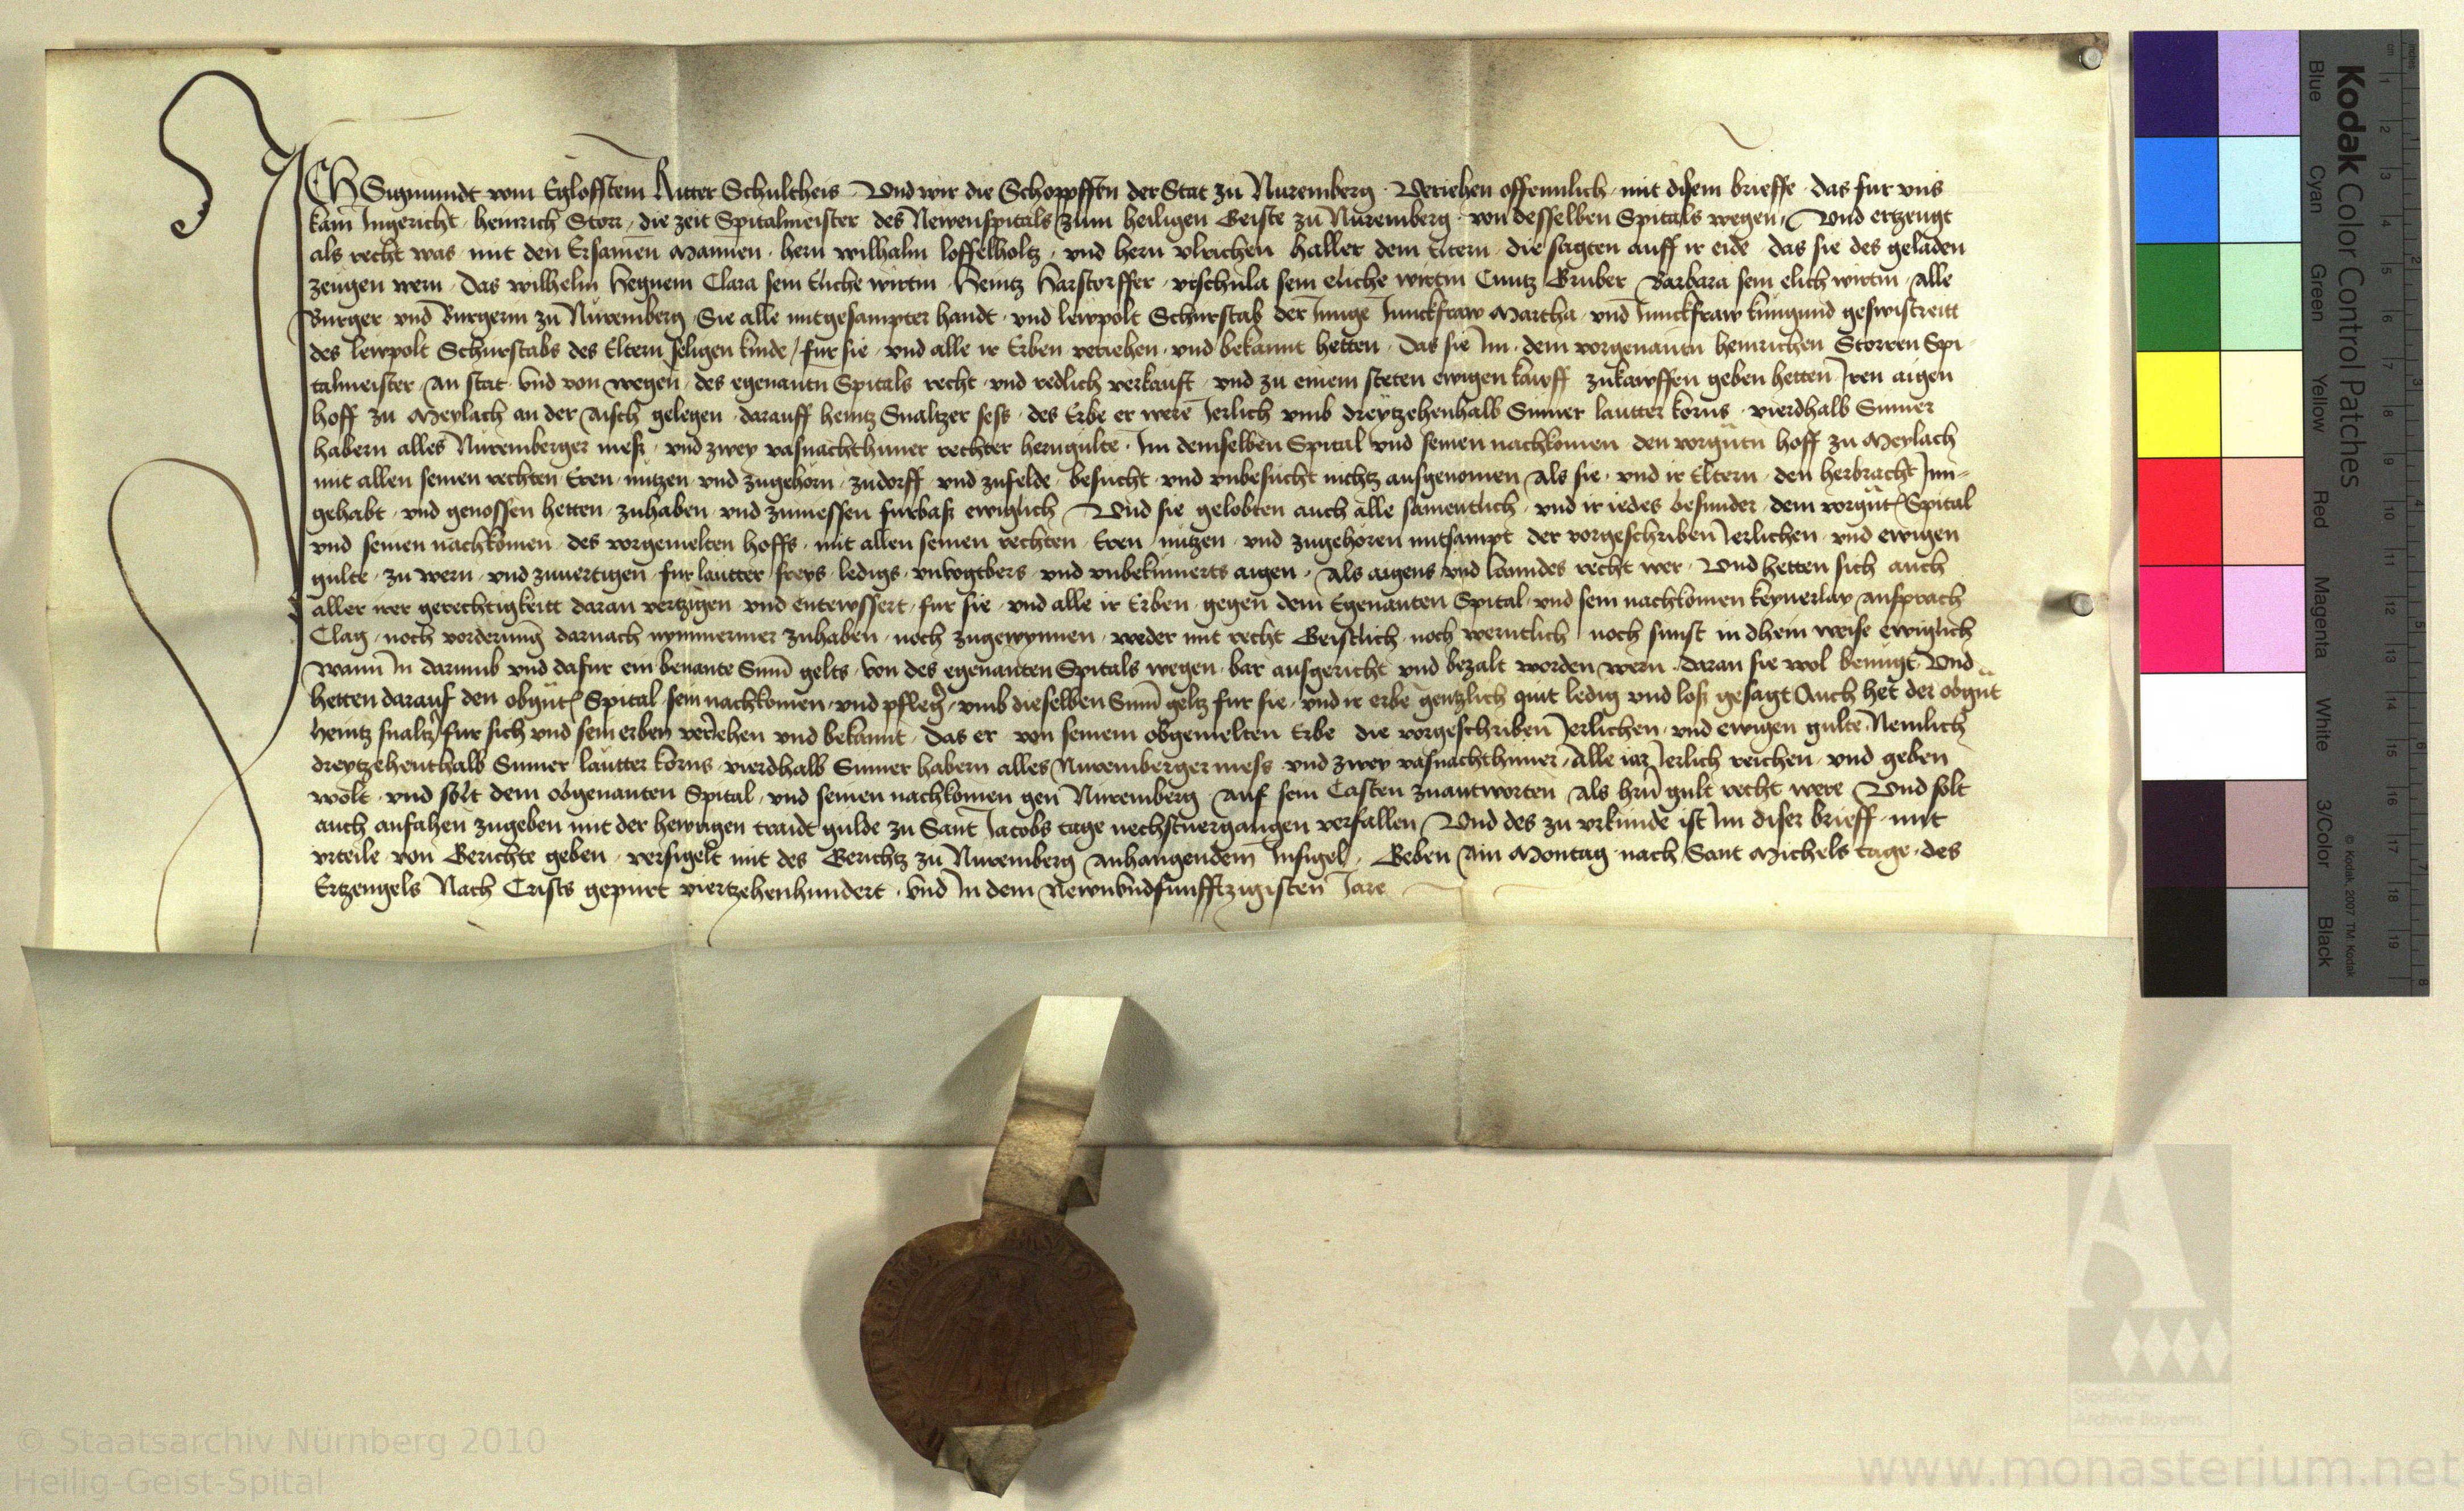 ICH Sigmundt vom Egloffstein Ritter Schultheis Und wir die Schopffen der Stat zu Nuremberg Veriehen offennlich mit disem brieffe das fur vns
kam Ingericht heinrich Storr die zeit Spitalmeister des Newenspitals zum heiligen Geiste zu Nuremberg von desselben Spitals wegen Und ertzeugt
als recht was mit den Ersamen Mannen hern wilhalm loffelholtz und hern vlrichen haller dem Eltern die sagten auff ir eide das sie des geladen
zeugen wern Das wilhelm Hegnein Clara sein Eliche wirtin Heintz Harstorffer vrschula sein eliche wirtin Cuntz Gruber Barbara sein elich wirtin Alle
Burger vnd Burgerin zu Nuremberg Sie alle mitgesampter handt vnd lewpolt Schurstab der Junge Junckfraw Martha vnd Junckfraw kungund geswistreitt
des lewpolt Schurstabs des Eltern seligen kinde fur sie vnd alle ir Erben veriehen vnd bekannt hetten Das sie Im dem vorgenantn heinrichen Storren Spi
talmeister An stat vnd von wegen des egenantn Spitals recht vnd redlich verkauft vnd zu einem steten ewigen kawff zukawffen geben hetten Iren aigen
hoff zu Meylach an der Aisch gelegen darauff heintz Snaltzer sess des Erbe er were Jerlich vmb dreytzehenhalb Sumer lautter korns vierdhalb Sumer
habern alles Nuremberger mess vnd zwey vasnachthuner rechter herngulte Im demselben Spital vnd seinen nachkomen den vorgntn hoff zu Meylach
mit allen seinen rechten Eren nutzen vnd zugehorn zudorff vnd zufelde besucht vnd vnbesucht nichtz ausgenomen Als sie vnd ir Eltern den herbracht Inn-
gehabt vnd genossen hetten zuhaben vnd zuniessen furbass ewiglich Und sie gelobten auch alle samentlich vnd ir iedes besunder dem vorgnt Spital
vnd seinen nachkomen des vorgemelten hoffs mit allen seinen rechten Eren nutzen vnd zugehoren mitsampt der vorgeschriben Jerlichen vnd ewigen
gulte zu wern vnd zuuertigen fur lautter freys ledigs vnuogtbers vnd vnbekumerts aigen Als aigens vnd lanndes recht wer Und hetten sich auch
aller irer gerechtigkeitt daran vertzigen vnd entewssert fur sie vnd alle ir Erben gegen dem Egenanten Spital vnd sein nachkomen keynerlay ansprach
Clag noch vorderung darnach nymmermer zuhaben noch zugewynnen weder mit recht Geistlich noch werntlich noch sunst in dhein weise ewiglich
wann In darumb vnd dafur ein benante Sum gelts von des egenanten Spitals wegen bar ausgericht vnd bezalt worden wern daran sie wol benugt Und
hetten darauf den obgnt Spital sein nachkomen vnd pfleger vmb dieselben Sum geltz fur sie vnd ir erbe gentzlich quit ledig vnd loss gesagt Auch het der obgnt
heintz snaltzer fur sich vnd sein erben veriehen vnd bekannt Das er von seinem obgemelten Erbe die vorgeschriben Jerlichen vnd ewigen gulte Nemlich
dreytzehenthalb Sumer lautter korns vierdhalb Sumer habern alles Nuremberger mess vnd zwey vasnachthuner Alle iar Jerlich reichen vnd geben
wolt vnd solt dem obgenanten Spital vnd seinen nachkomen gen Nuremberg auf sein Casten zuantworten als hern gult recht were Und solt
auch anfahen zugeben mit der hewrigen traidt gulde zu Sant Jacobs tage nechstuergangen verfallen Und des zu vrkunde ist Im diser brieff mit
vrteile von Gerichte geben versigelt mit des Gerichtz zu Nuremberg anhangendem Insigel Geben Am Montag nach Sant Michels tage des
Ertzengels Nach Crists gepurt viertzehenhundert vnd In dem Newnvndfunfftzigisten Jare
Kodak Color Control Patches
Blue Cyan Green Yellow Red Magenta White 3/Color Black
© Kodak, 2007 TM: Kodak
© Staatsarchiv Nürnberg 2010
Heilig-Geist-Spital
Staatliche
Archive Bayerns
www.monasterium.net